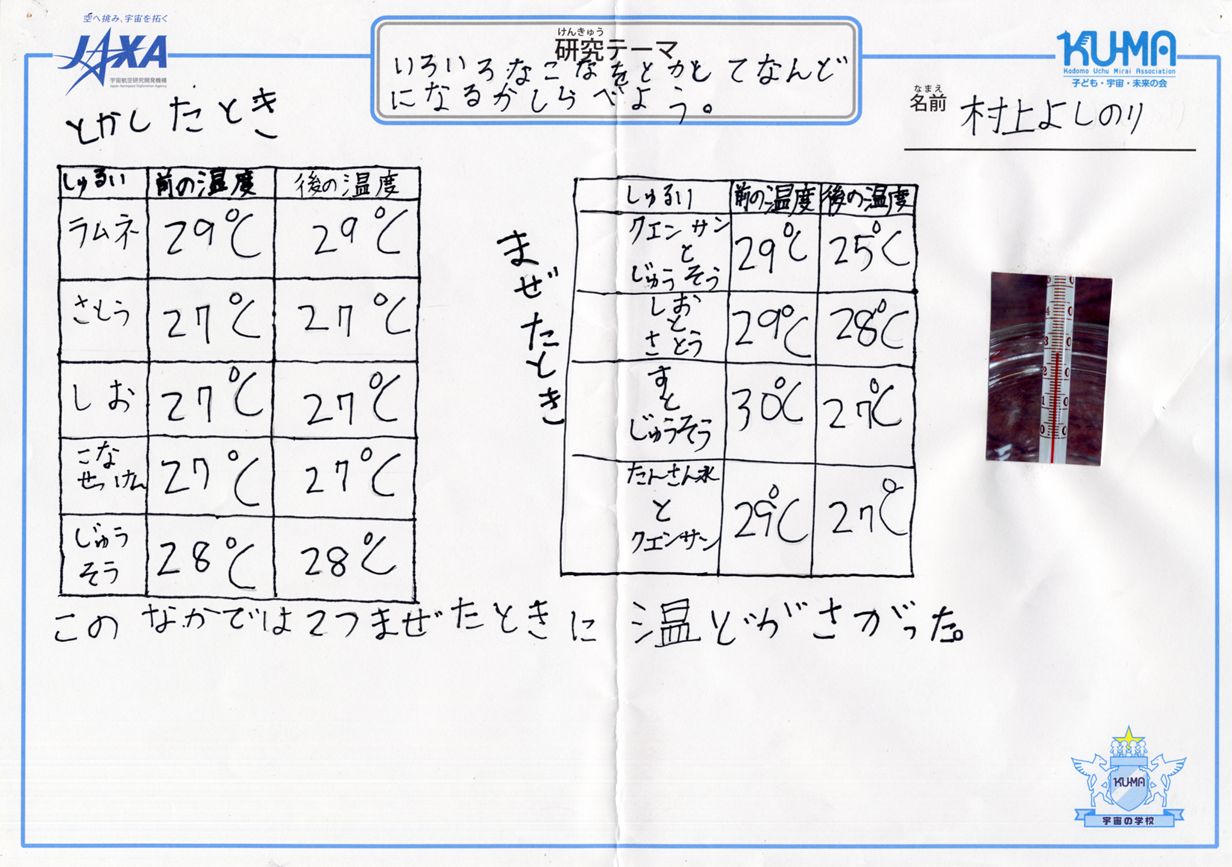 空へ挑み、宇宙を拓く
JAXA
宇宙航空研究開発機構
Japan Aerospace Exploration Agency
けんきゅう
研究テーマ
いろいろなこなをとかしてなんど
になるかしらべよう。
KU-MA
Kodomo Uchu Mirai Association
子ども・宇宙・未来の会
なまえ
名前 村上よしのり
とかしたとき
しゅるい 前の温度 後の温度
ラムネ 29℃ 29℃
さとう 27℃ 27℃
しお 27℃ 27℃
こな
せっけん 27℃ 27℃
じゅう
そう 28℃ 28℃
まぜたとき
しゅるい 前の温度 後の温度
クエンサン
と
じゅうそう 29℃ 25℃
しお
と
さとう 29℃ 28℃
す
と
じゅうそう 30℃ 27℃
たんさん水
と
クエンサン 29℃ 27℃
このなかでは2つまぜたときに温どがさがった。
KU-MA
宇宙の学校